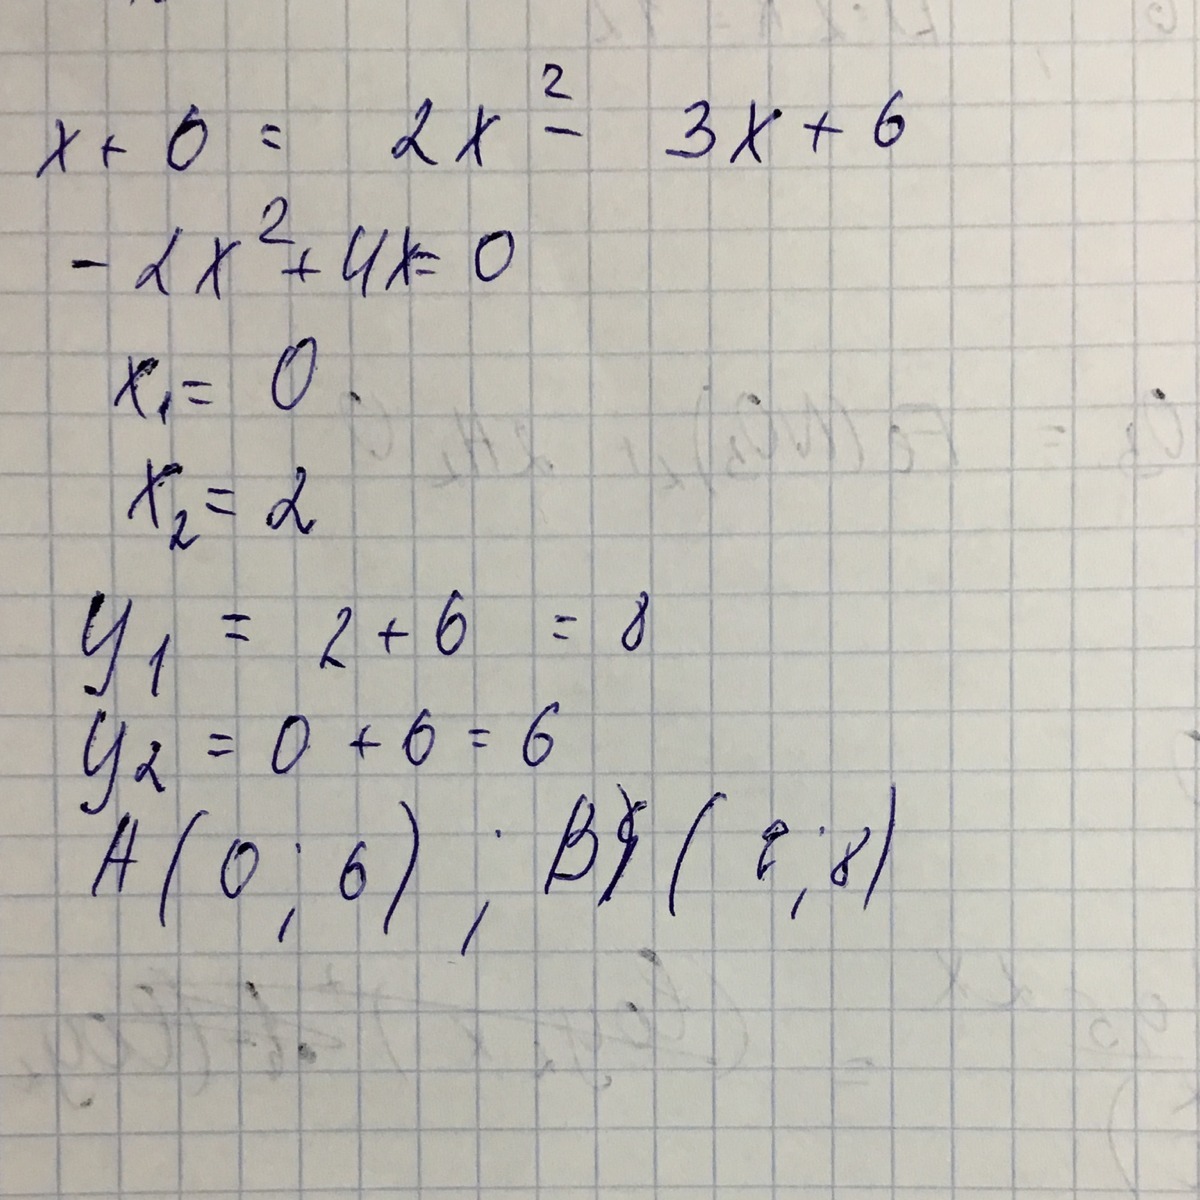 x + 6 = 2x² - 3x + 6
- 2x² + 4x = 0
x₁ = 0
x₂ = 2
y₁ = 2 + 6 = 8
y₂ = 0 + 6 = 6
A (0; 6) ; B (2; 8)